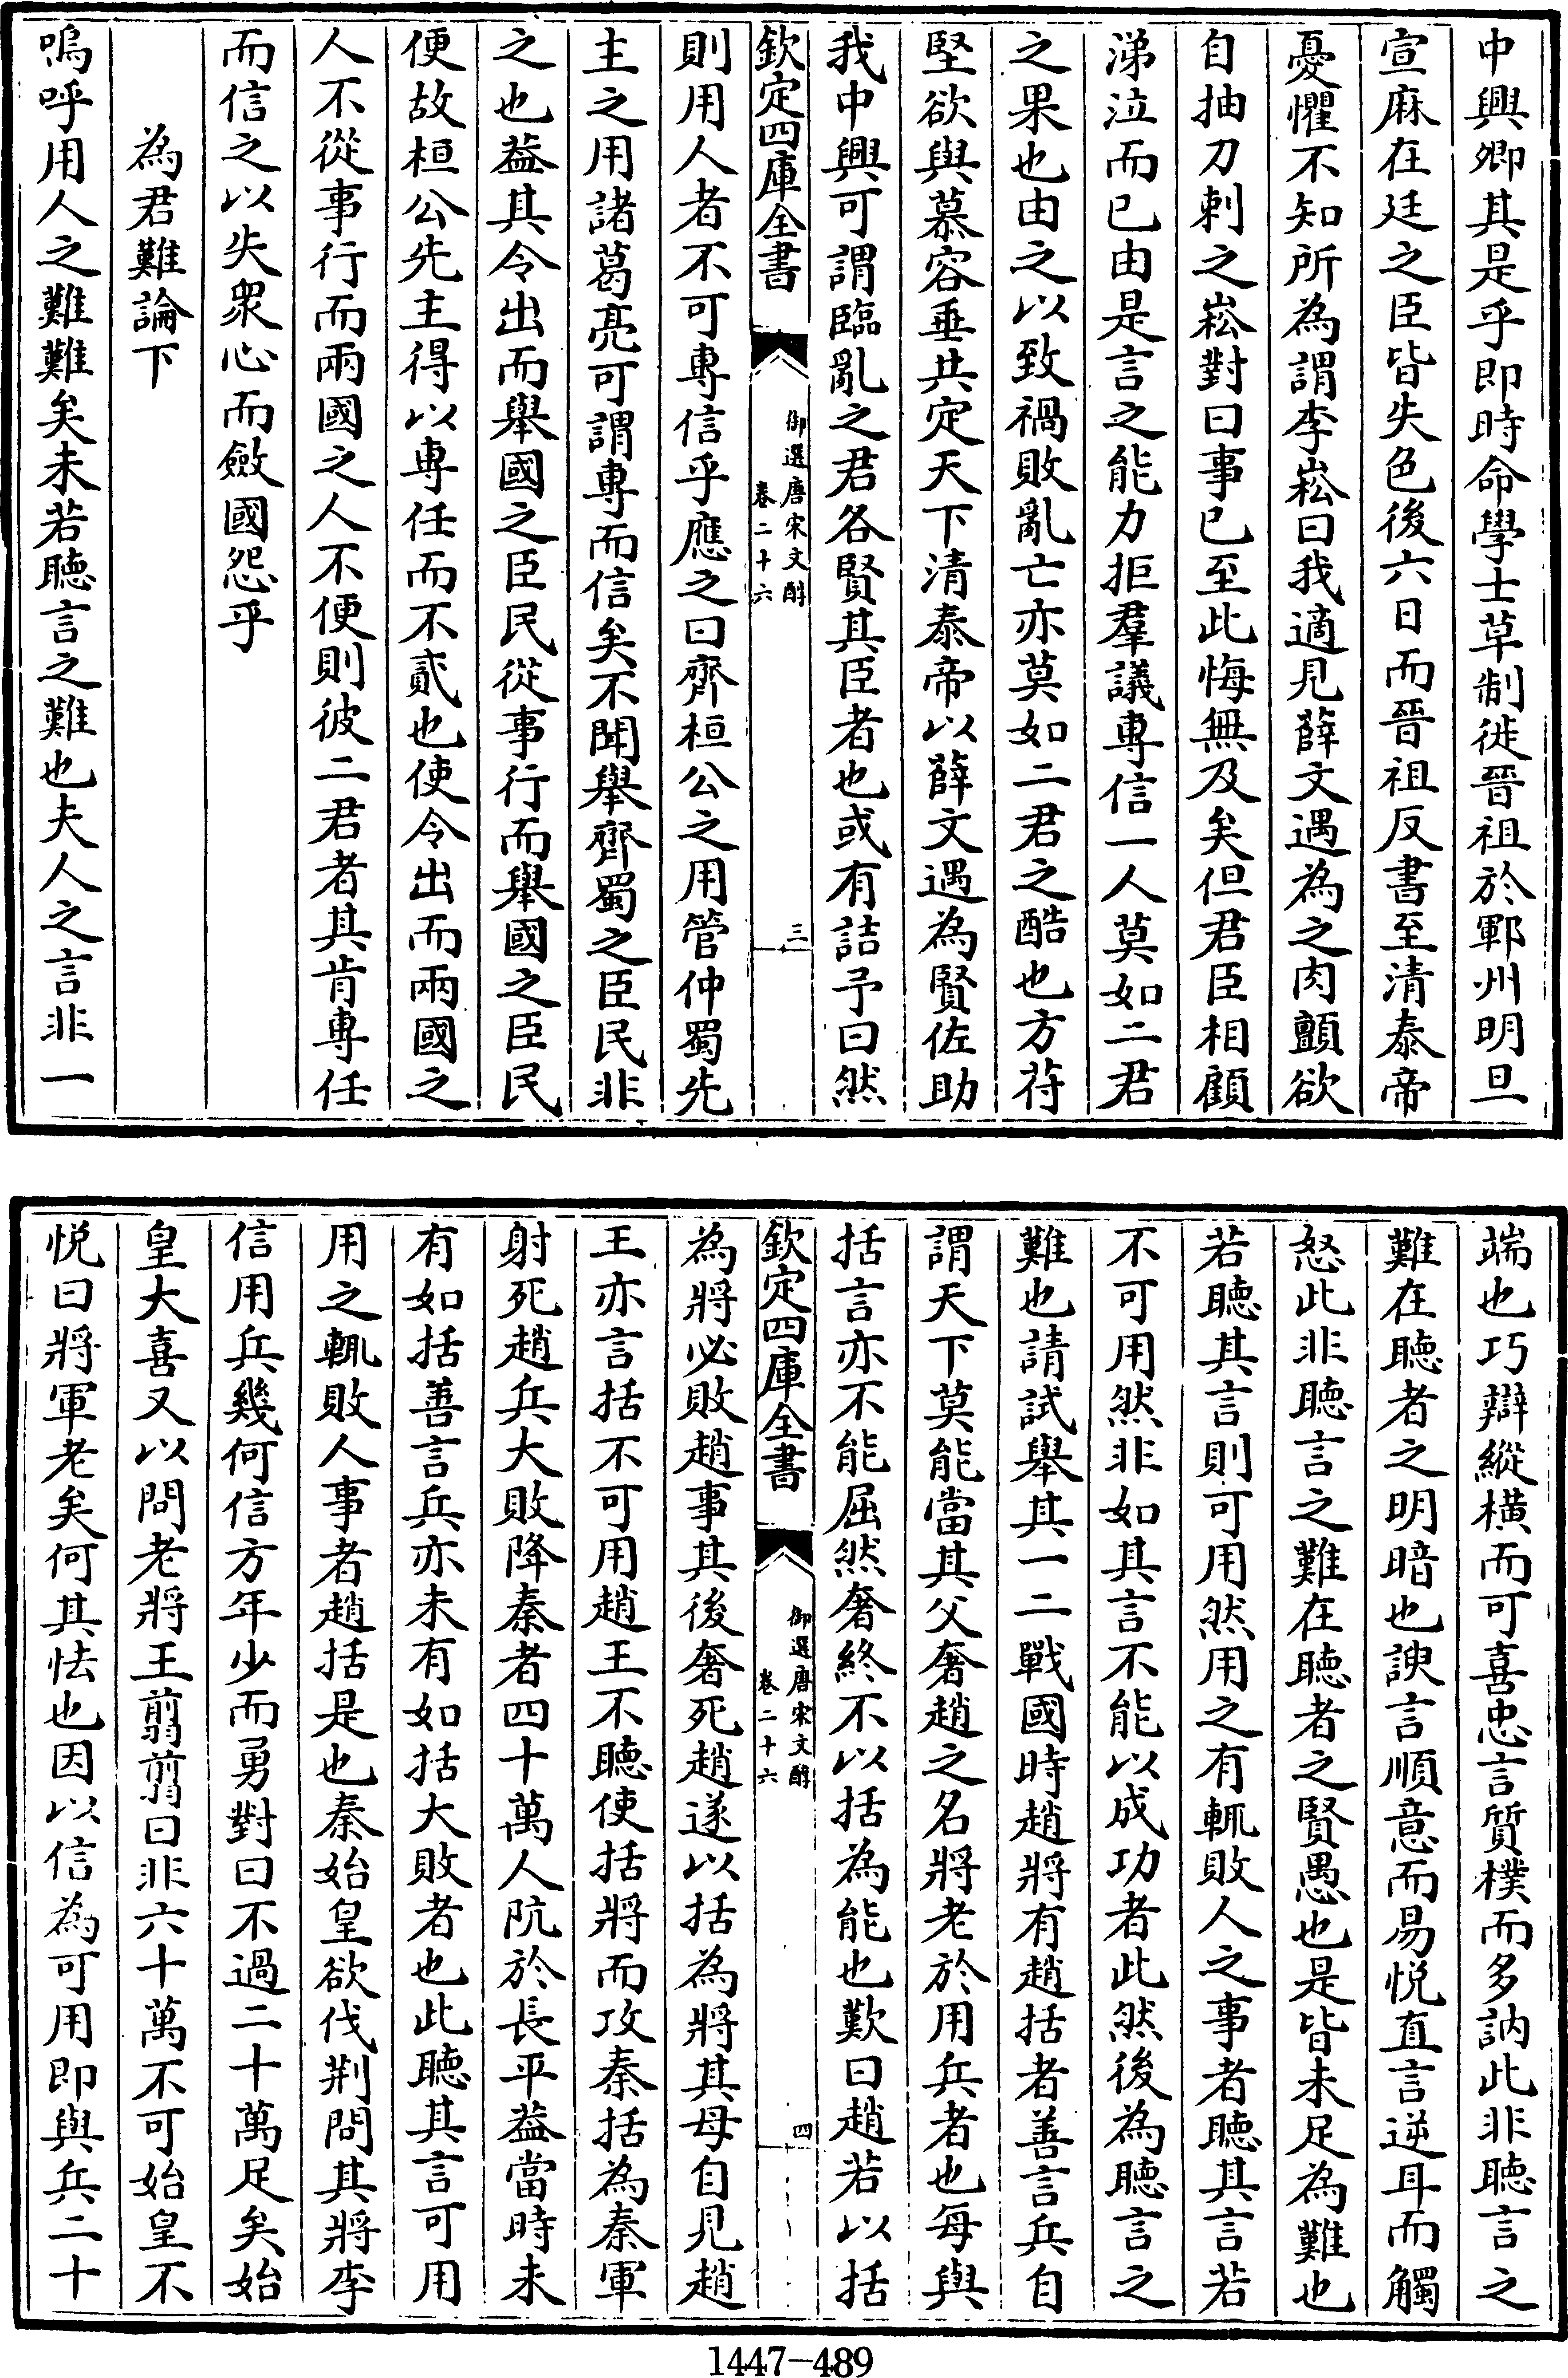 中興卿其是乎即時命學士草制徙晉祖於鄆州明旦
宣麻在廷之臣皆失色後六日而晉祖反書至清泰帝
憂懼不知所為謂李崧曰我適見薛文遇為之肉顫欲
自抽刀刺之崧對曰事已至此悔無及矣但君臣相顧
涕泣而已由是言之能力拒羣議專信一人莫如二君
之果也由之以致禍敗亂亡亦莫如二君之酷也方苻
堅欲與慕容垂共定天下清泰帝以薛文遇為賢佐助
我中興可謂臨亂之君各賢其臣者也或有詰予曰然
欽定四庫全書
御選唐宋文醇
卷二十六
三
則用人者不可專信乎應之曰齊桓公之用管仲蜀先
主之用諸葛亮可謂專而信矣不聞舉齊蜀之臣民非
之也葢其令出而舉國之臣民從事行而舉國之臣民
便故桓公先主得以專任而不貳也使令出而兩國之
人不從事行而兩國之人不便則彼二君者其肯專任
而信之以失衆心而斂國怨乎
為君難論下
嗚呼用人之難難矣未若聽言之難也夫人之言非一
端也巧辯縱橫而可喜忠言質樸而多訥此非聽言之
難在聽者之明暗也諛言順意而易悅直言逆耳而觸
怒此非聽言之難在聽者之賢愚也是皆未足為難也
若聽其言則可用然用之有輒敗人之事者聽其言若
不可用然非如其言不能以成功者此然後為聽言之
難也請試舉其一二戰國時趙將有趙括者善言兵自
謂天下莫能當其父奢趙之名將老於用兵者也每與
括言亦不能屈然奢終不以括為能也歎曰趙若以括
欽定四庫全書
御選唐宋文醇
卷二十六
四
為將必敗趙事其後奢死趙遂以括為將其母自見趙
王亦言括不可用趙王不聽使括將而攻秦括為秦軍
射死趙兵大敗降秦者四十萬人阬於長平葢當時未
有如括善言兵亦未有如括大敗者也此聽其言可用
用之輒敗人事者趙括是也秦始皇欲伐荆問其將李
信用兵幾何信方年少而勇對曰不過二十萬足矣始
皇大喜又以問老將王翦翦曰非六十萬不可始皇不
悅曰將軍老矣何其怯也因以信為可用即與兵二十
1447-489